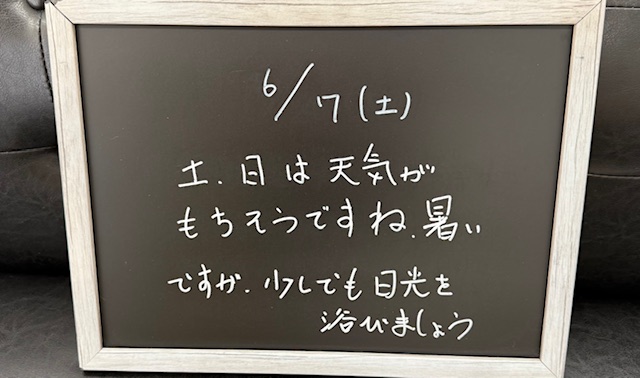 6/7(土)
土、日は天気が
もちそうですね、暑い
ですが、少しでも日光を
浴びましょう